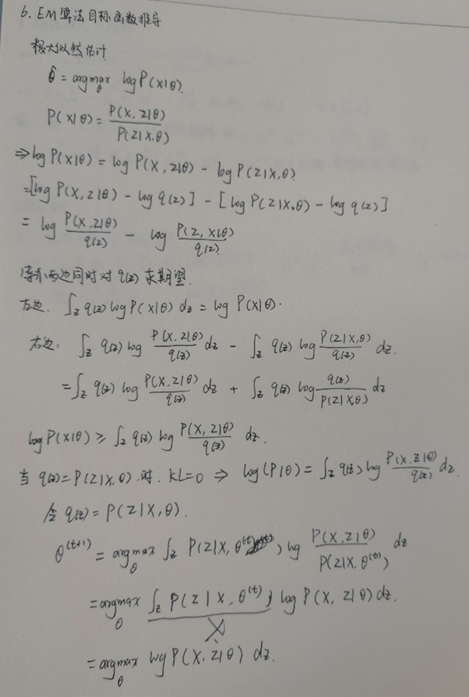 6. EM算法目标函数推导
极大似然估计
θ̂ = argmax_θ log P(X|θ)
P(X|θ) = P(X,Z|θ) / P(Z|X,θ)
⇒ log P(X|θ) = log P(X,Z|θ) - log P(Z|X,θ)
= [log P(X,Z|θ) - log q(z)] - [log P(Z|X,θ) - log q(z)]
= log P(X,Z|θ)/q(z) - log P(Z,X|θ)/q(z)
两边同时对 q(z) 求期望
左边: ∫_z q(z) log P(X|θ) dz = log P(X|θ).
右边: ∫_z q(z) log P(X,Z|θ)/q(z) dz - ∫_z q(z) log P(Z|X,θ)/q(z) dz.
= ∫_z q(z) log P(X,Z|θ)/q(z) dz + ∫_z q(z) log q(z)/P(Z|X,θ) dz
log P(X|θ) ≥ ∫_z q(z) log P(X,Z|θ)/q(z) dz.
当 q(z) = P(Z|X,θ) 时. KL=0 ⇒ log(P|θ) = ∫_z q(z) log P(X,Z|θ)/q(z) dz
令 q(z) = P(Z|X,θ).
θ^(t+1) = argmax_θ ∫_z P(Z|X,θ^(t)) log P(X,Z|θ)/P(Z|X,θ^(t)) dz
= argmax_θ ∫_z P(Z|X,θ^(t)) log P(X,Z|θ) dz.
= argmax_θ log P(X,Z|θ) dz.